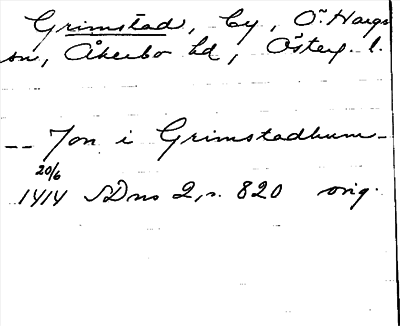 Grimstad, by, Ö. Hargs
sn, Åkerbo hd, Österg. l.
-- Jon i Grimstadhum -
20/6
1414 SDns 2, s. 820 orig.